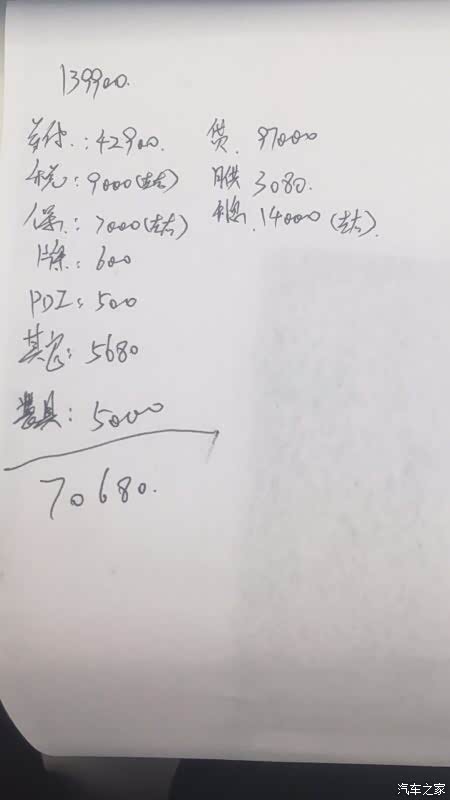 139900.
首付.: 42900. 贷. 97000
税: 9000(左右) 月供 3080.
保: 7000(左右) 利息. 14000(左右).
牌: 600
PDI: 500
其它: 5680
具: 5000
70680.
汽车之家